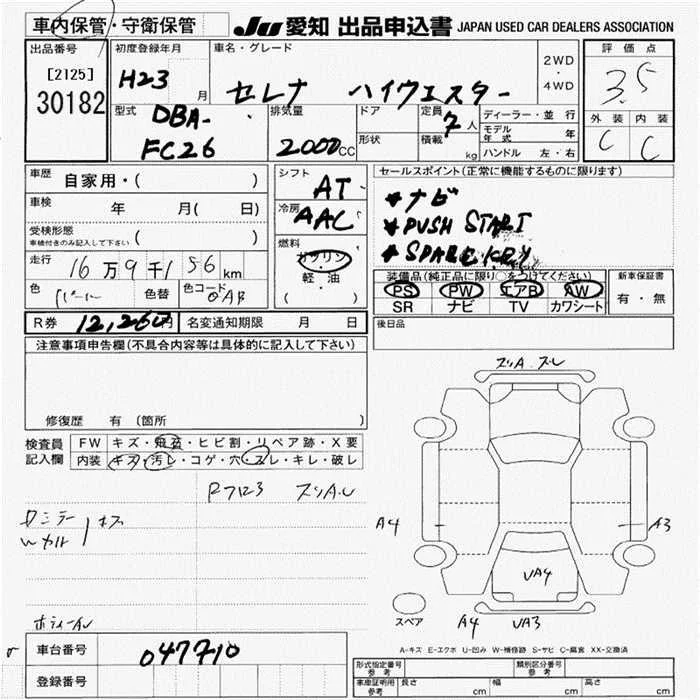 車内保管・守衛保管
JU 愛知 出品申込書 JAPAN USED CAR DEALERS ASSOCIATION
出品番号
[2125]
30182
初度登録年月
H23 月
車名・グレード
セレナ ハイウェスター
2WD
・
4WD
評価点
3.5
外装 内装
C C
型式
DBA-
FC26
排気量
2000CC
ドア
形状
定員 7人
積載 kg
ディーラー・並行
モデル年式 年
ハンドル 左・右
車歴 自家用・( )
車検 年 月( 日)
受検形態
車検付きのみ記入して下さい ( )
走行 16万9千156km
色 パール 色替 色カラーコード QAB
シフト AT
冷房 AAC
燃料
ガソリン
軽・油
( )
セールスポイント(正常に機能するものに限ります)
★ナビ
★PUSH START
★SPARE KEY
装備品(純正品に限り○をつけてください)
PS PW エアB AW
SR ナビ TV カワシート
新車保証書
有・無
R券 12,260円 名変通知期限 月 日
後日品
注意事項申告欄(不具合内容等は具体的に記入して下さい)
修復歴 有 (箇所 )
検査員
記入欄
FW キズ・飛石・ヒビ割・リペア跡・X要
内装 キズ・汚レ・コゲ・穴・スレ・キレ・破レ
スリA.U
キズ
スリA スレ
A4
A3
UA4
スペア
A4 UA3
A-キズ E-エクボ U-凹み W-補修跡 S-サビ C-腐食 XX-交換済
車台番号 047710
登録番号
形式指定番号
参考
類別区分番号
参考
車庫証明用
参考
長さ cm 幅 cm 高さ cm